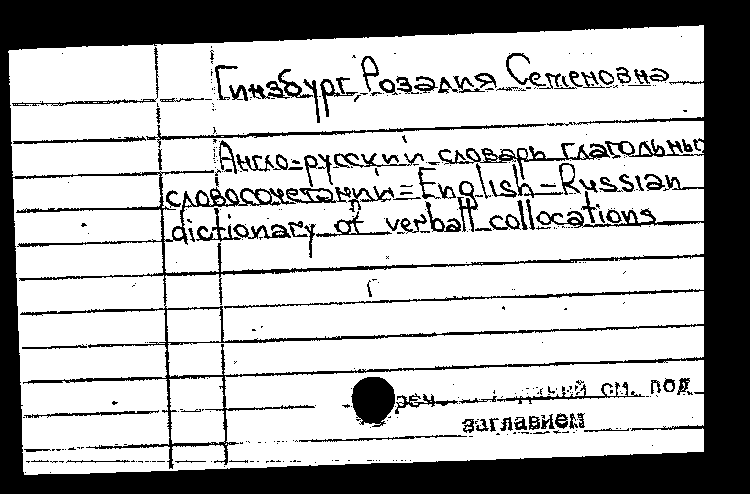 Гинзбург, Розалия Семеновна
Англо-русский словарь глагольных
словосочетаний = English-Russian
dictionary of verball collocations
Г
см. под
заглавием